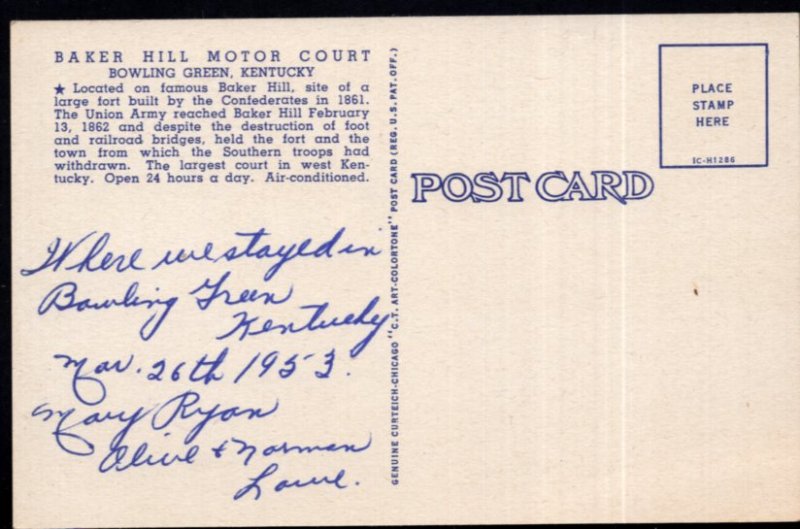 BAKER HILL MOTOR COURT
BOWLING GREEN, KENTUCKY
★ Located on famous Baker Hill, site of a
large fort built by the Confederates in 1861.
The Union Army reached Baker Hill February
13, 1862 and despite the destruction of foot
and railroad bridges, held the fort and the
town from which the Southern troops had
withdrawn. The largest court in west Ken-
tucky. Open 24 hours a day. Air-conditioned.
Where we stayed in
Bowling Green
Kentucky
Mar. 26th 1953.
Mary Ryan
Olive + Norman
Lowe.
GENUINE CURTEICH-CHICAGO "C.T. ART-COLORTONE" POST CARD (REG. U.S. PAT. OFF.)
POST CARD
PLACE
STAMP
HERE
IC-H1286